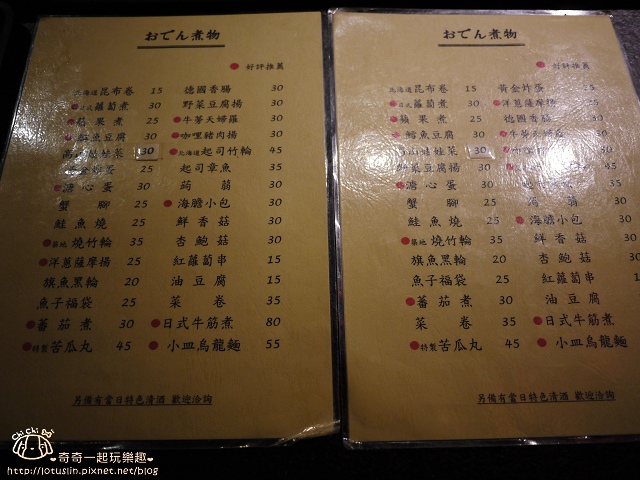 おでん煮物
好評推薦
北海道昆布卷 15 德國香腸 30
日式蘿蔔煮 30 野菜豆腐揚 30
蘋果煮 25 牛蒡天婦羅 30
鱈魚豆腐 30 咖哩豬肉揚 30
高山娃娃菜 30 北海道起司竹輪 45
黃金炸蛋 25 起司章魚 35
溏心蛋 30 蒟蒻 30
蟹腳 25 海膽小包 30
鮭魚燒 25 鮮香菇 30
築地燒竹輪 35 杏鮑菇 30
洋蔥薩摩揚 25 紅蘿蔔串 15
旗魚黑輪 20 油豆腐 15
魚子福袋 25 菜卷 35
蕃茄煮 30 日式牛筋煮 80
特製苦瓜丸 45 小皿烏龍麵 55
另備有當日特色清酒 歡迎洽詢
おでん煮物
好評推薦
北海道昆布卷 15 黃金炸蛋 25
日式蘿蔔煮 30 洋蔥薩摩揚
蘋果煮 25 德國香腸
鱈魚豆腐 30 牛蒡天婦羅
高山娃娃菜 30
野菜豆腐揚 30
溏心蛋 30
蟹腳 25 蒟蒻
鮭魚燒 25 海膽小包
築地燒竹輪 35 鮮香菇
旗魚黑輪 20 杏鮑菇
魚子福袋 25 紅蘿蔔串
蕃茄煮 30 油豆腐
菜卷 35 日式牛筋煮
特製苦瓜丸 45 小皿烏龍麵
另備有當日特色清酒 歡迎洽詢
Chi Chi Bei
奇奇一起玩樂趣
http://lotuslin.pixnet.net/blog